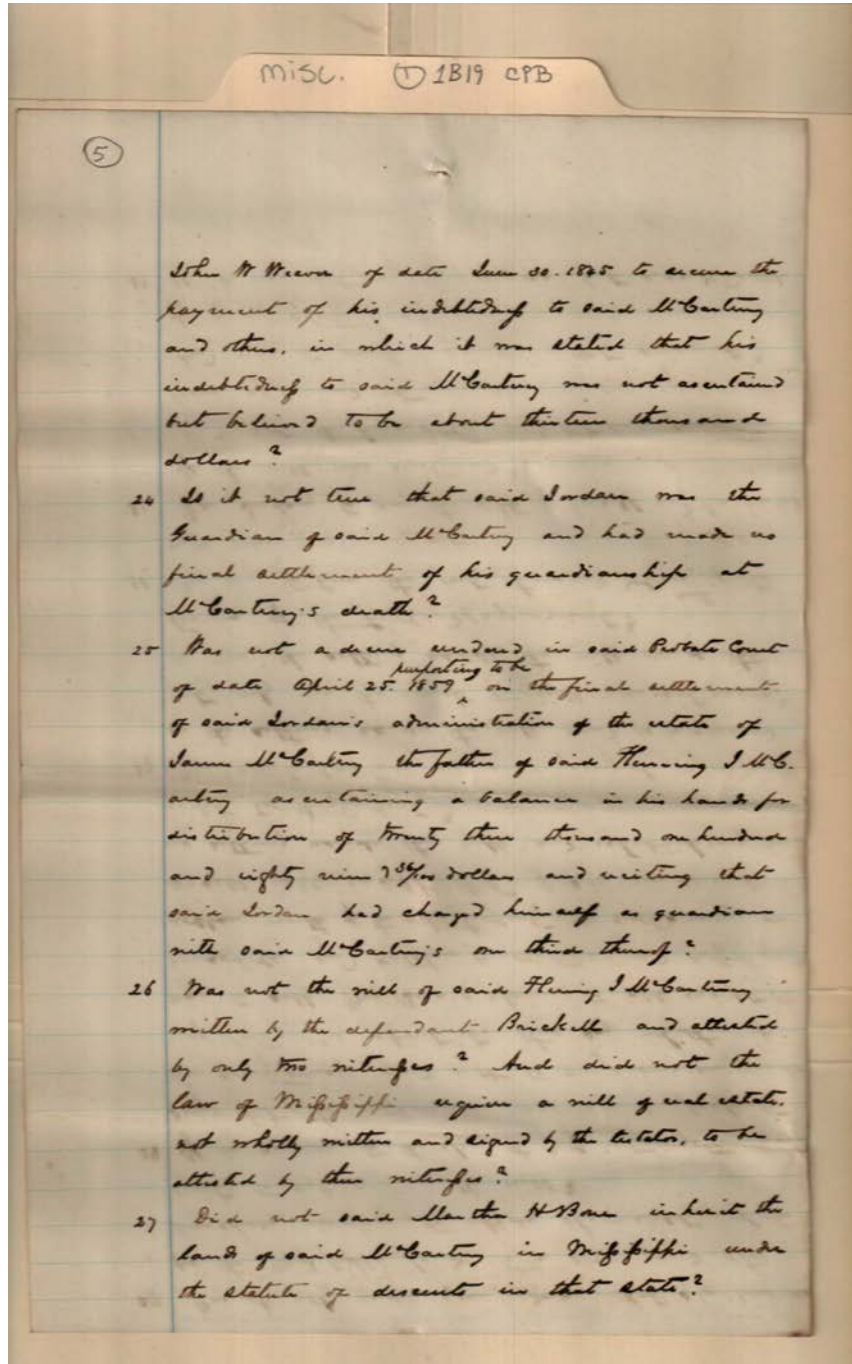 misc. ① 1B19 CPB
5
John W Weaver of date June 30. 1845 to secure the
payment of his indebtedness to said McCartney
and others, in which it was stated that his
indebtedness to said McCartney was not ascertained
but believed to be about thirteen thousand
dollars?
24 Is it not true that said Jordan was the
Guardian of said McCartney and had made no
final settlement of his guardianship at
McCartney's death?
25 Was not a decree rendered in said Probate Court
purporting to be
of date April 25. 1859 ‸ on the final settlement
of said Jordan's administration of the estate of
James McCartney the father of said Fleming J McC-
artney ascertaining a balance in his hands for
distribution of twenty three thousand one hundred
and eighty nine & 36/100 dollars and reciting that
said Jordan had charged himself as guardian
with said McCartney's one third thereof?
26 Was not the will of said Fleming J McCartney
written by the defendant Brickell and attested
by only two witnesses? And did not the
law of Mississippi require a will of real estate,
not wholly written and signed by the testator, to be
attested by three witnesses?
27 Did not said Martha H Bone inherit the
lands of said McCartney in Mississippi under
the statute of descents in that state?